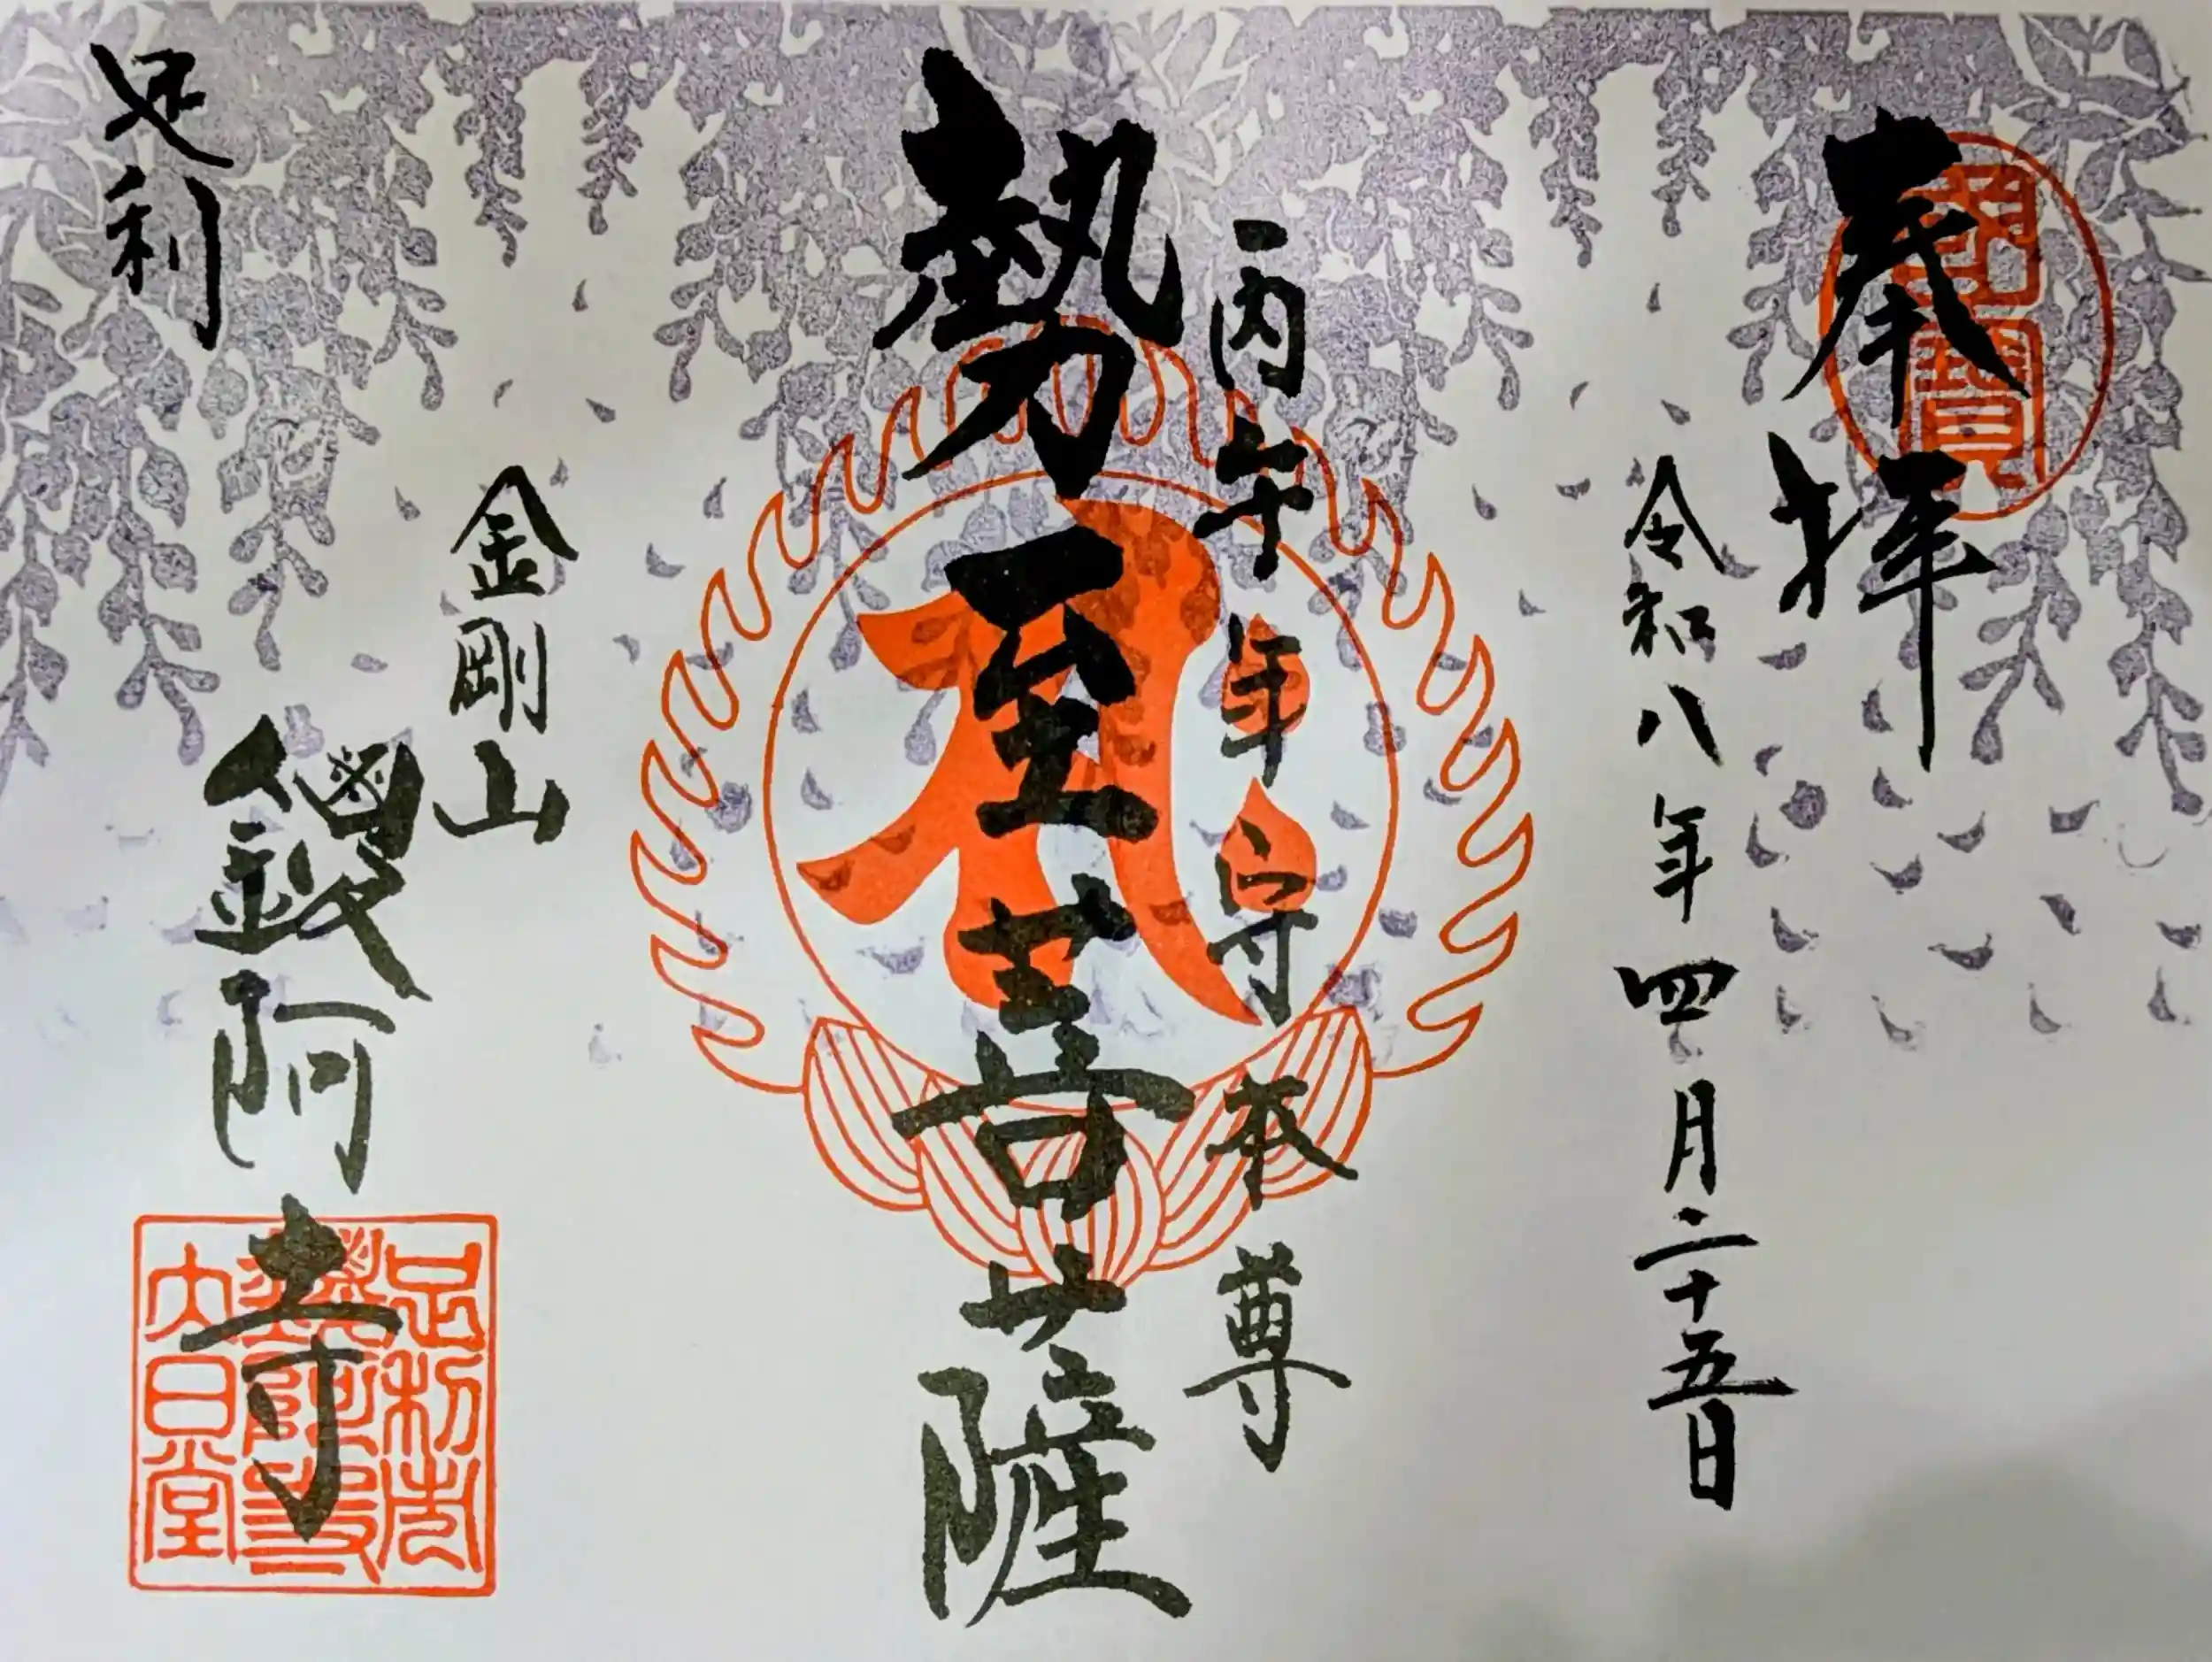 奉拝
令和八年四月二十五日
丙午年守本尊
勢至菩薩
金剛山
鑁阿寺
足利
足利市
鑁阿寺
大日堂